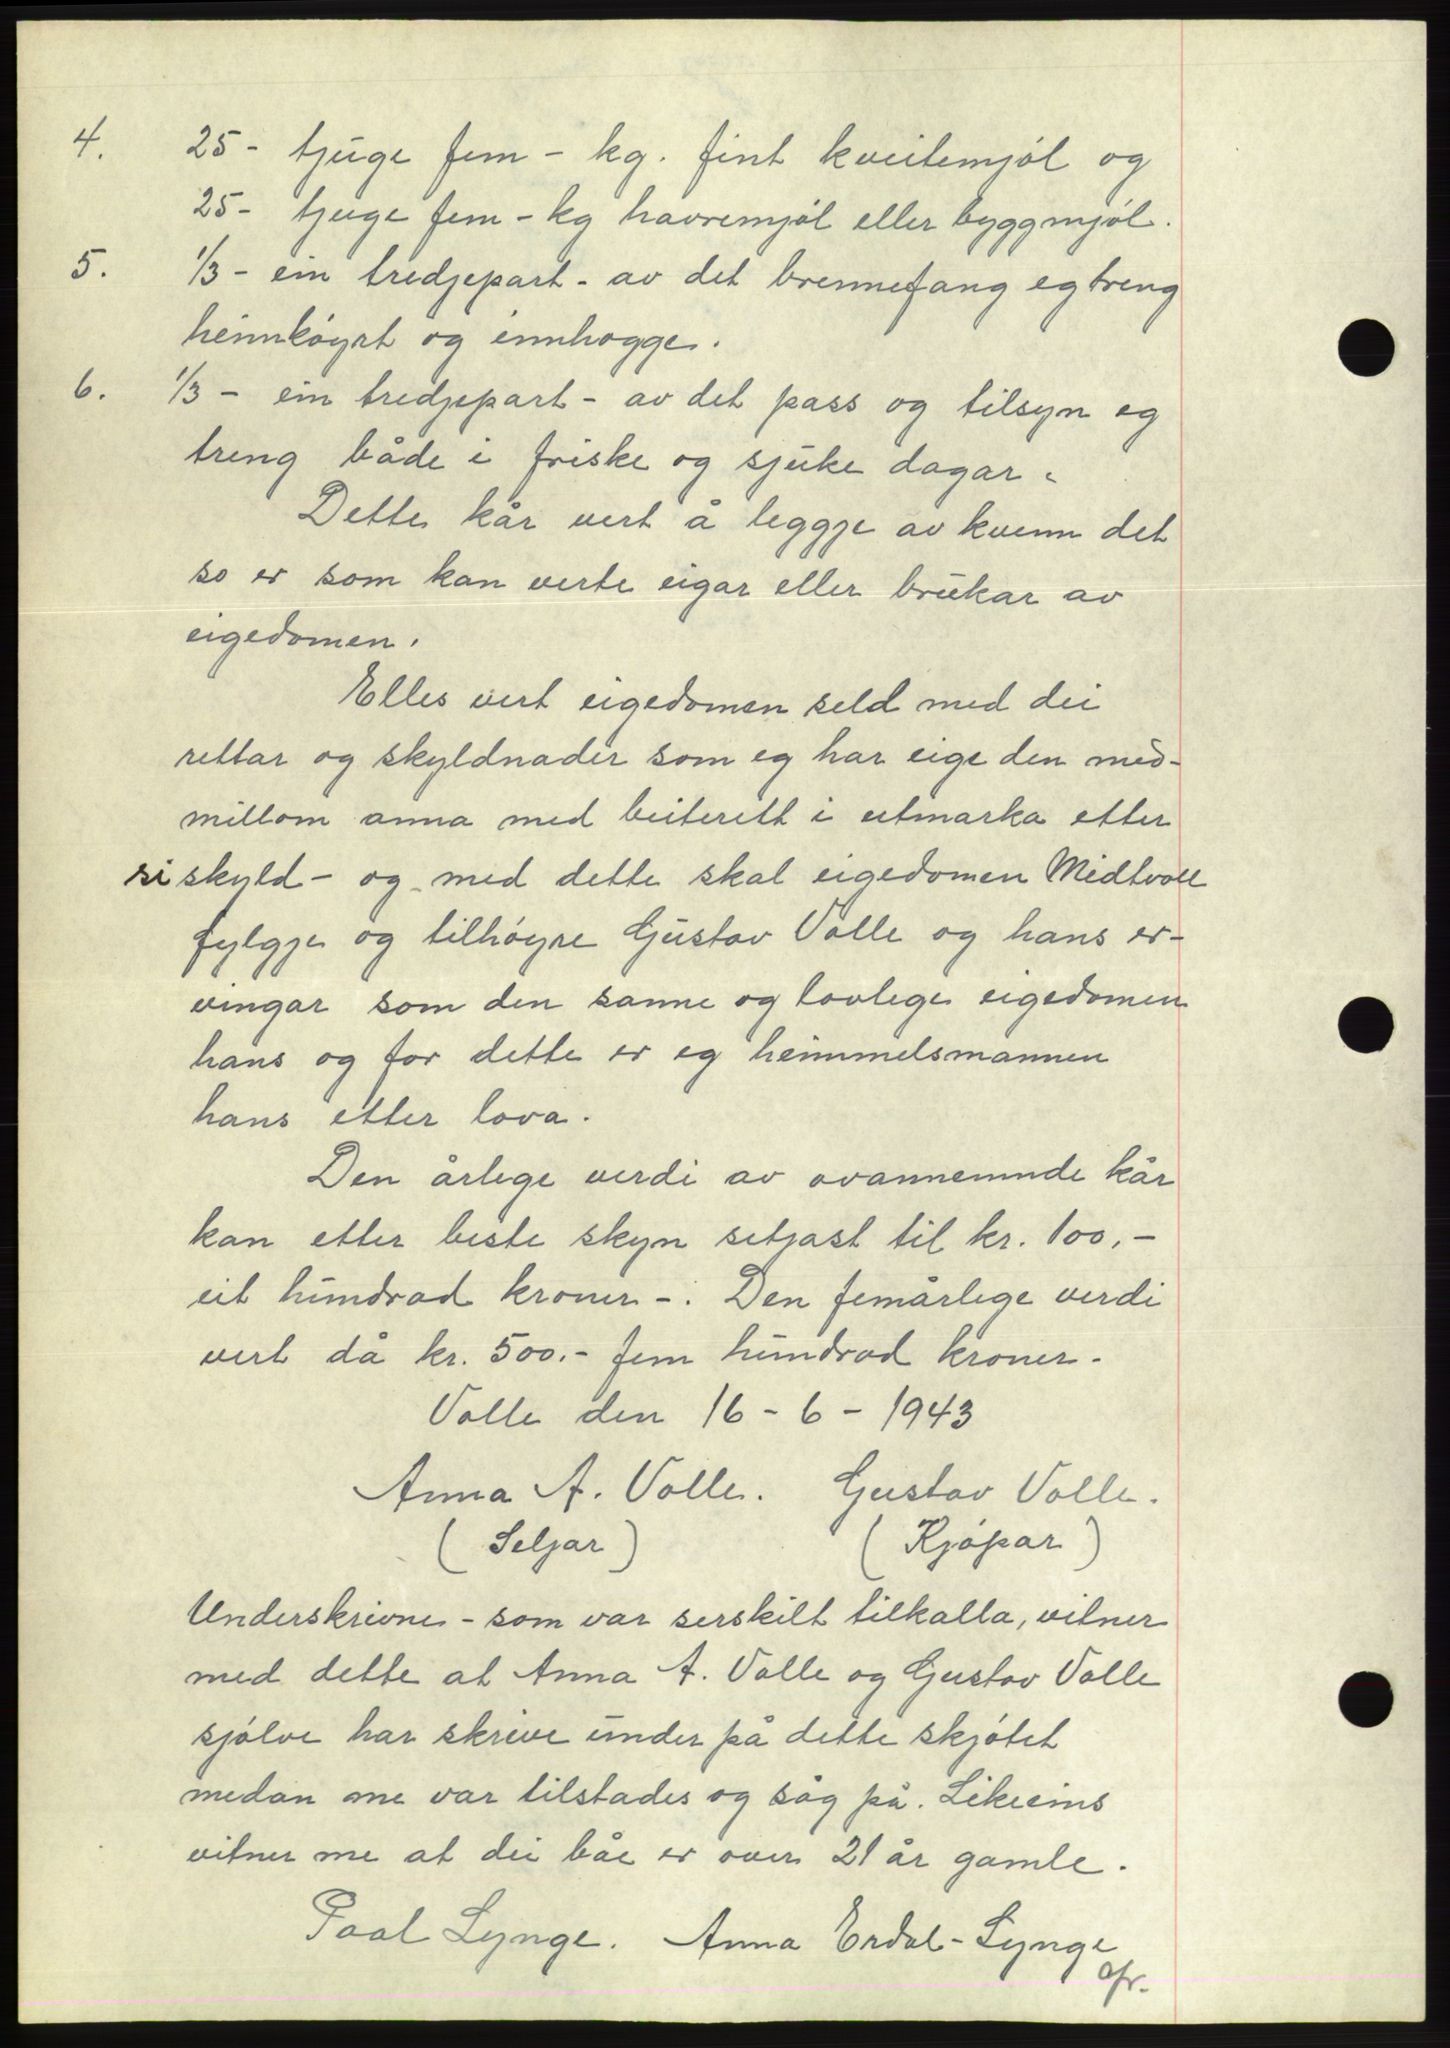 4. 25- tjuge fem - kg. fint kveitemjøl og
25- tjuge fem - kg havremjøl eller byggmjøl.
5. 1/3 - ein tredjepart - av det brennefang eg treng
heimkøyrt og innhogge.
6. 1/3 - ein tredjepart - av det pass og tilsyn eg
treng både i friske og sjuke dagar.
Dette kår vert å leggje av kvenn det
so er som kan verte eigar eller brukar av
eigedomen.
Elles vert eigedomen seld med dei
rettar og skyldnader som eg har eige den med-
millom anna med beiterett i utmarka etter
si skyld - og med dette skal eigedomen Midtvoll
fylgje og tilhøyre Gustav Valle og hans er-
vingar som den sanne og lovlege eigedomen
hans og for dette er eg heimmelsmannen
hans etter lova.
Den årlege verdi av ovannemnde kår
kan etter beste skyn setjast til kr. 100,-
eit hundrad kroner -. Den femårlege verdi
vert då kr. 500.- fem hundrad kroner.
Valle den 16 - 6 - 1943
Anna A. Valle. Gustav Valle.
( Seljar ) ( Kjøpar )
Underskrivne - som var serskilt tilkalla, vitner
med dette at Anna A. Valle og Gustav Valle
sjølve har skrive under på dette skjøtet
medan me var tilstades og såg på. Likeeins
vitner me at dei båe er over 21 år gamle.
Paal Lynge. Anna Erdal-Lynge
afr.